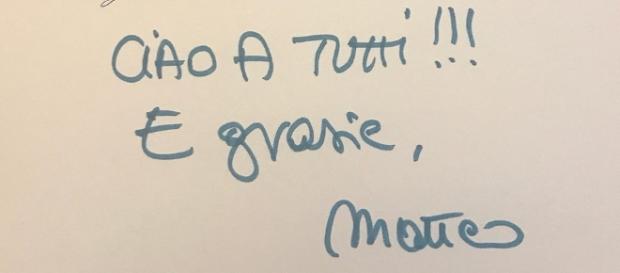 CIAO A TUTTI!!!
E grazie,
Matteo